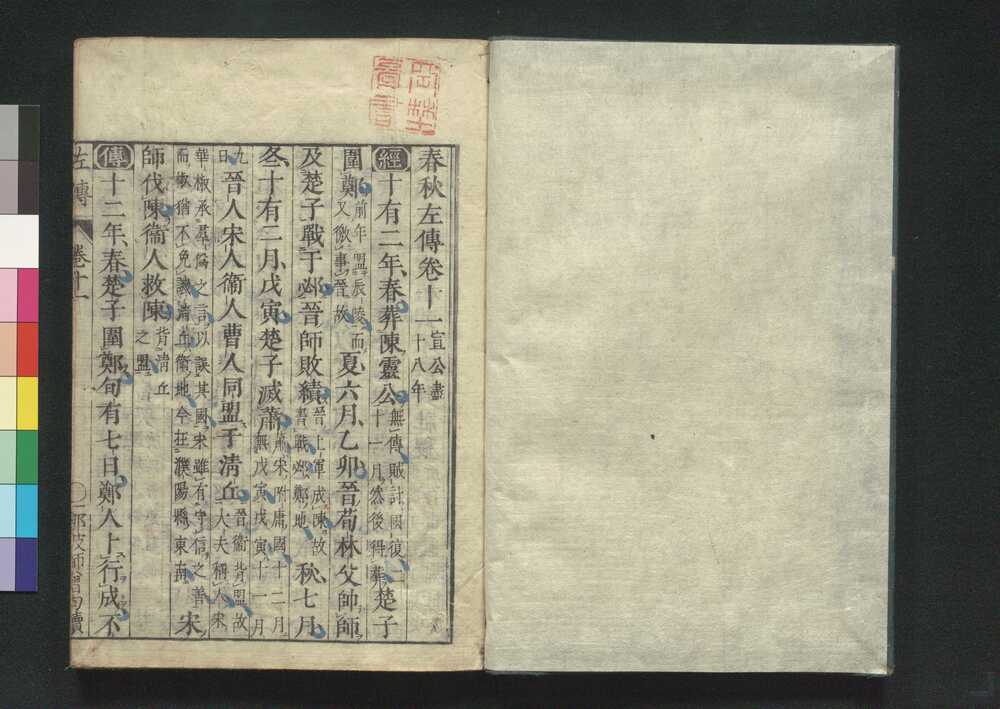 春秋左傳卷十一 宣公盡十八年
經十有二年春葬陳靈公 無傳賊討國復二十一月然後得葬 楚子
圍鄭 前年盟辰陵而又徼事晉故 夏六月乙卯晉荀林父帥師
及楚子戰于邲晉師敗績 晉上軍成陳故書戰邲鄭地 秋七月
冬十有二月戊寅楚子滅蕭 蕭宋附庸國十二月無戊寅戊寅十一月
九日 晉人宋人衞人曹人同盟于淸丘 晉衞背盟故大夫稱人宋
華椒承羣僞之言以誤其國宋雖有守信之善而椒猶不免譏淸丘衞地今在濮陽縣東南 宋
師伐陳衞人救陳 背淸丘之盟
傳十二年春楚子圍鄭旬有七日鄭人卜行成不
左傳 卷十一 一 那波師曾句讀